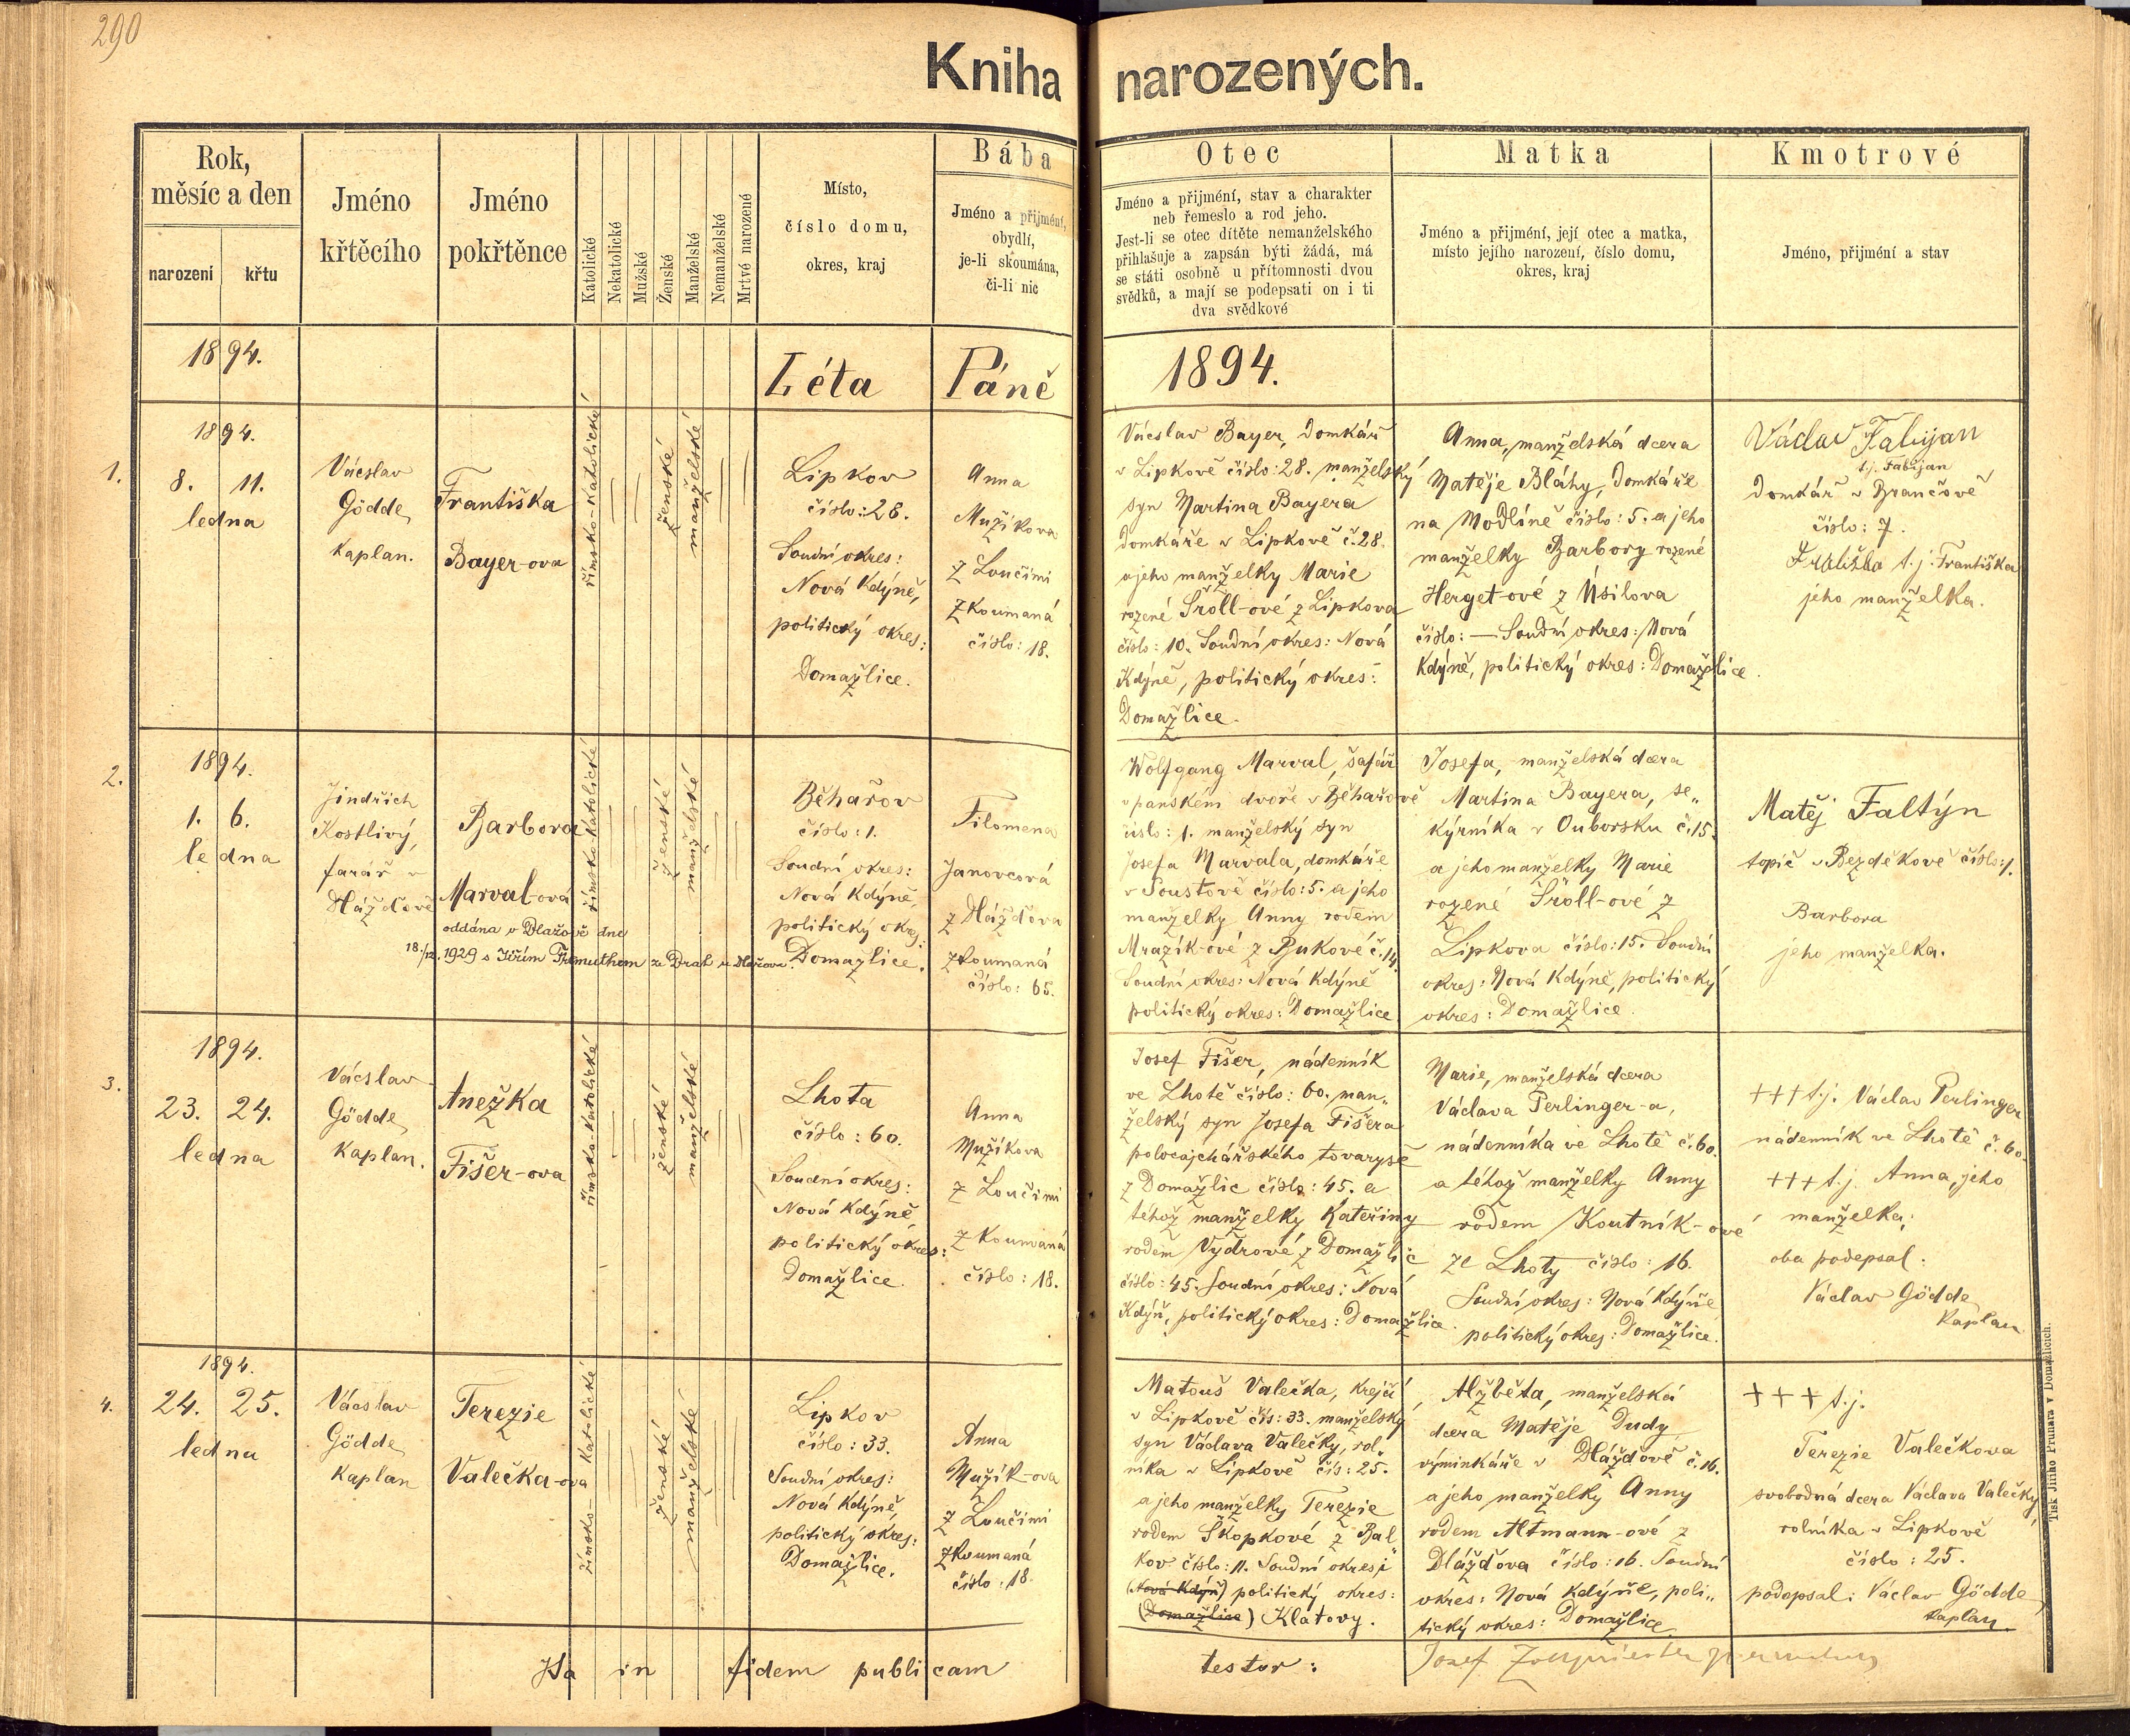 290
Kniha narozených.
Rok,
měsíc a den
narození
křtu
Jméno
křtěcího
Jméno
pokřtěnce
Katolické
Nekatolické
Mužské
Ženské
Manželské
Nemanželské
Mrtvé narozené
Místo,
číslo domu,
okres, kraj
Bába
Jméno a přijmení,
obydlí,
je-li skoumána,
či-li nic
Otec
Jméno a přijmení, stav a charakter
neb řemeslo a rod jeho.
Jest-li se otec dítěte nemanželského
přihlašuje a zapsán býti žádá, má
se státi osobně u přítomnosti dvou
svědků, a mají se podepsati on i ti
dva svědkové
Matka
Jméno a přijmení, její otec a matka,
místo jejího narození, číslo domu,
okres, kraj
Kmotrové
Jméno, přijmení a stav
1894.
Léta Páně 1894.
1.
1894.
8. 11.
ledna
Vácslav
Gödde,
kaplan.
Františka
Bayer-ova
římsko-katolické
ženské
manželské
Lipkov
číslo: 28.
Soudní okres:
Nová Kdýně,
politický okres:
Domažlice.
Anna
Mužíkova
z Loučimi
zkoumaná
číslo: 18.
Vácslav Bayer, domkář
v Lipkově číslo: 28. manželský
syn Martina Bayera
domkáře v Lipkově č. 28.
a jeho manželky Marie
rozené Šröll-ové z Lipkova
číslo: 10. Soudní okres: Nová
Kdýně, politický okres:
Domažlice.
Anna, manželská dcera
Matěje Bláhy, domkáře
na Modlíně číslo: 5. a jeho
manželky Barbory rozené
Herget-ové z Úsilova
číslo: — Soudní okres: Nová
Kdýně, politický okres: Domažlice.
Václav Fabijan
t.j. Fabijan
domkář v Brančově
číslo: 7.
t. j. Františka
jeho manželka.
2.
1894.
1. 6.
ledna
Jindřich
Kostlivý,
farář v
Dlážďově
Barbora
Marval-ová
oddána v Dlažově dne
18./12. 1929 s Jiřím
římsko-katolické
ženské
manželské
Běhařov
číslo: 1.
Soudní okres:
Nová Kdýně,
politický okres:
Domažlice.
Filomena
Janovcová
z Dlážďova
zkoumaná
číslo: 65.
Wolfgang Marval, šafář
v panském dvoře v Běhařově
číslo: 1. manželský syn
Josefa Marvala, domkáře
v Soustově číslo: 5. a jeho
manželky Anny rodem
Mrazík-ové z Bukové č. 14.
Soudní okres: Nová Kdýně
politický okres: Domažlice.
Josefa, manželská dcera
Martina Bayera, se„
kýrníka v Ouborsku č. 15.
a jeho manželky Marie
rozené Šröll-ové z
Lipkova číslo: 15. Soudní
okres: Nová Kdýně, politický
okres: Domažlice.
Matěj Faltýn
topič v Bezděkově číslo: 1.
Barbora
jeho manželka.
3.
1894.
23. 24.
ledna
Vácslav
Gödde,
kaplan.
Anežka
Fišer-ova
římsko-katolické
ženské
manželské
Lhota
číslo: 60.
Soudní okres:
Nová Kdýně
politický okres:
Domažlice.
Anna
Mužíkova
z Loučimi
zkoumaná
číslo: 18.
Josef Fišer, nádenník
ve Lhotě číslo: 60. man„
želský syn Josefa Fišera
polocajchářského tovaryše
z Domažlic číslo: 45. a
téhož manželky Kateřiny
rodem Vydrové z Domažlic
číslo: 45. Soudní okres: Nová
Kdýň, politický okres: Domažlice.
Marie, manželská dcera
Václava Perlinger-a,
nádenníka ve Lhotě č. 60.
a téhož manželky Anny
rodem Koutník-ové
ze Lhoty číslo: 16.
Soudní okres: Nová Kdýně
politický okres: Domažlice.
+++ t.j. Václav Perlinger
nádenník ve Lhotě č. 60.
+++ t.j. Anna, jeho
manželka;
oba podepsal:
Václav Gödde,
kaplan
4.
1894.
24. 25.
ledna
Vácslav
Gödde,
kaplan
Terezie
Valečka-ova
římsko-katolické
ženské
manželské
Lipkov
číslo: 33.
Soudní okres:
Nová Kdýně,
politický okres:
Domažlice.
Anna
Mužík-ova
z Loučimi
zkoumaná
číslo: 18.
Matouš Valečka, krejčí,
v Lipkově čís: 33. manželský
syn Václava Valečky, rol„
níka v Lipkově čís: 25.
a jeho manželky Terezie
rodem Škopkové z Bal
kov číslo: 11. Soudní okres:
(Nová Kdýň) politický okres:
(Domažlice) Klatovy.
Alžběta, manželská
dcera Matěje Dudy,
výminkáře v Dlážďově č. 16.
a jeho manželky Anny
rodem Altmann-ové z
Dlážďova číslo: 16. Soudní
okres: Nová Kdýně, poli„
tický okres: Domažlice.
+++ t.j.
Terezie Valečkova
svobodná dcera Václava Valečky,
rolníka v Lipkově
číslo: 25.
podepsal: Václav Gödde,
kaplan.
Ita in fidem publicam testor:
Josef
Tisk Jiřího Prunara v Domažlicích.